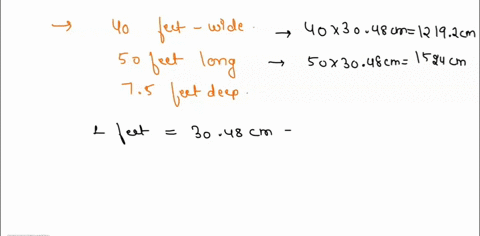 → 40 feet-wide. → 40×30.48cm=1219.2cm
50 feet long → 50×30.48cm=1524cm
7.5 feet deep.
1 feet = 30.48 cm -